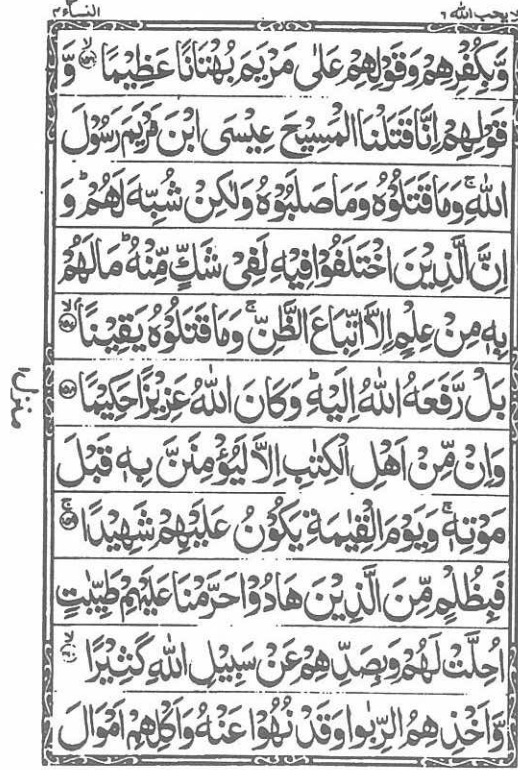 لا یحب الله ٦
النساء ٤
وَّبِكُفْرِهِمْ وَقَوْلِهِمْ عَلٰی مَرْیَمَ بُهْتَانًا عَظِیْمًا ۙ﴿۱۵۶﴾ وَّ
قَوْلِهِمْ اِنَّا قَتَلْنَا الْمَسِیْحَ عِیْسَی ابْنَ مَرْیَمَ رَسُوْلَ
اللّٰهِ ۚ وَمَا قَتَلُوْهُ وَمَا صَلَبُوْهُ وَلٰكِنْ شُبِّهَ لَهُمْ ؕ وَ
اِنَّ الَّذِیْنَ اخْتَلَفُوْا فِیْهِ لَفِیْ شَكٍّ مِّنْهُ ؕ مَا لَهُمْ
بِهٖ مِنْ عِلْمٍ اِلَّا اتِّبَاعَ الظَّنِّ ۚ وَمَا قَتَلُوْهُ یَقِیْنًۢا ۙ﴿۱۵۷﴾
بَلْ رَّفَعَهُ اللّٰهُ اِلَیْهِ ؕ وَكَانَ اللّٰهُ عَزِیْزًا حَكِیْمًا ﴿۱۵۸﴾
وَاِنْ مِّنْ اَهْلِ الْكِتٰبِ اِلَّا لَیُؤْمِنَنَّ بِهٖ قَبْلَ
مَوْتِهٖ ۚ وَیَوْمَ الْقِیٰمَةِ یَكُوْنُ عَلَیْهِمْ شَهِیْدًا ۚ﴿۱۵۹﴾
فَبِظُلْمٍ مِّنَ الَّذِیْنَ هَادُوْا حَرَّمْنَا عَلَیْهِمْ طَیِّبٰتٍ
اُحِلَّتْ لَهُمْ وَبِصَدِّهِمْ عَنْ سَبِیْلِ اللّٰهِ كَثِیْرًا ۙ﴿۱۶۰﴾
وَّاَخْذِهِمُ الرِّبٰوا وَقَدْ نُهُوْا عَنْهُ وَاَكْلِهِمْ اَمْوَالَ
منزل ۱